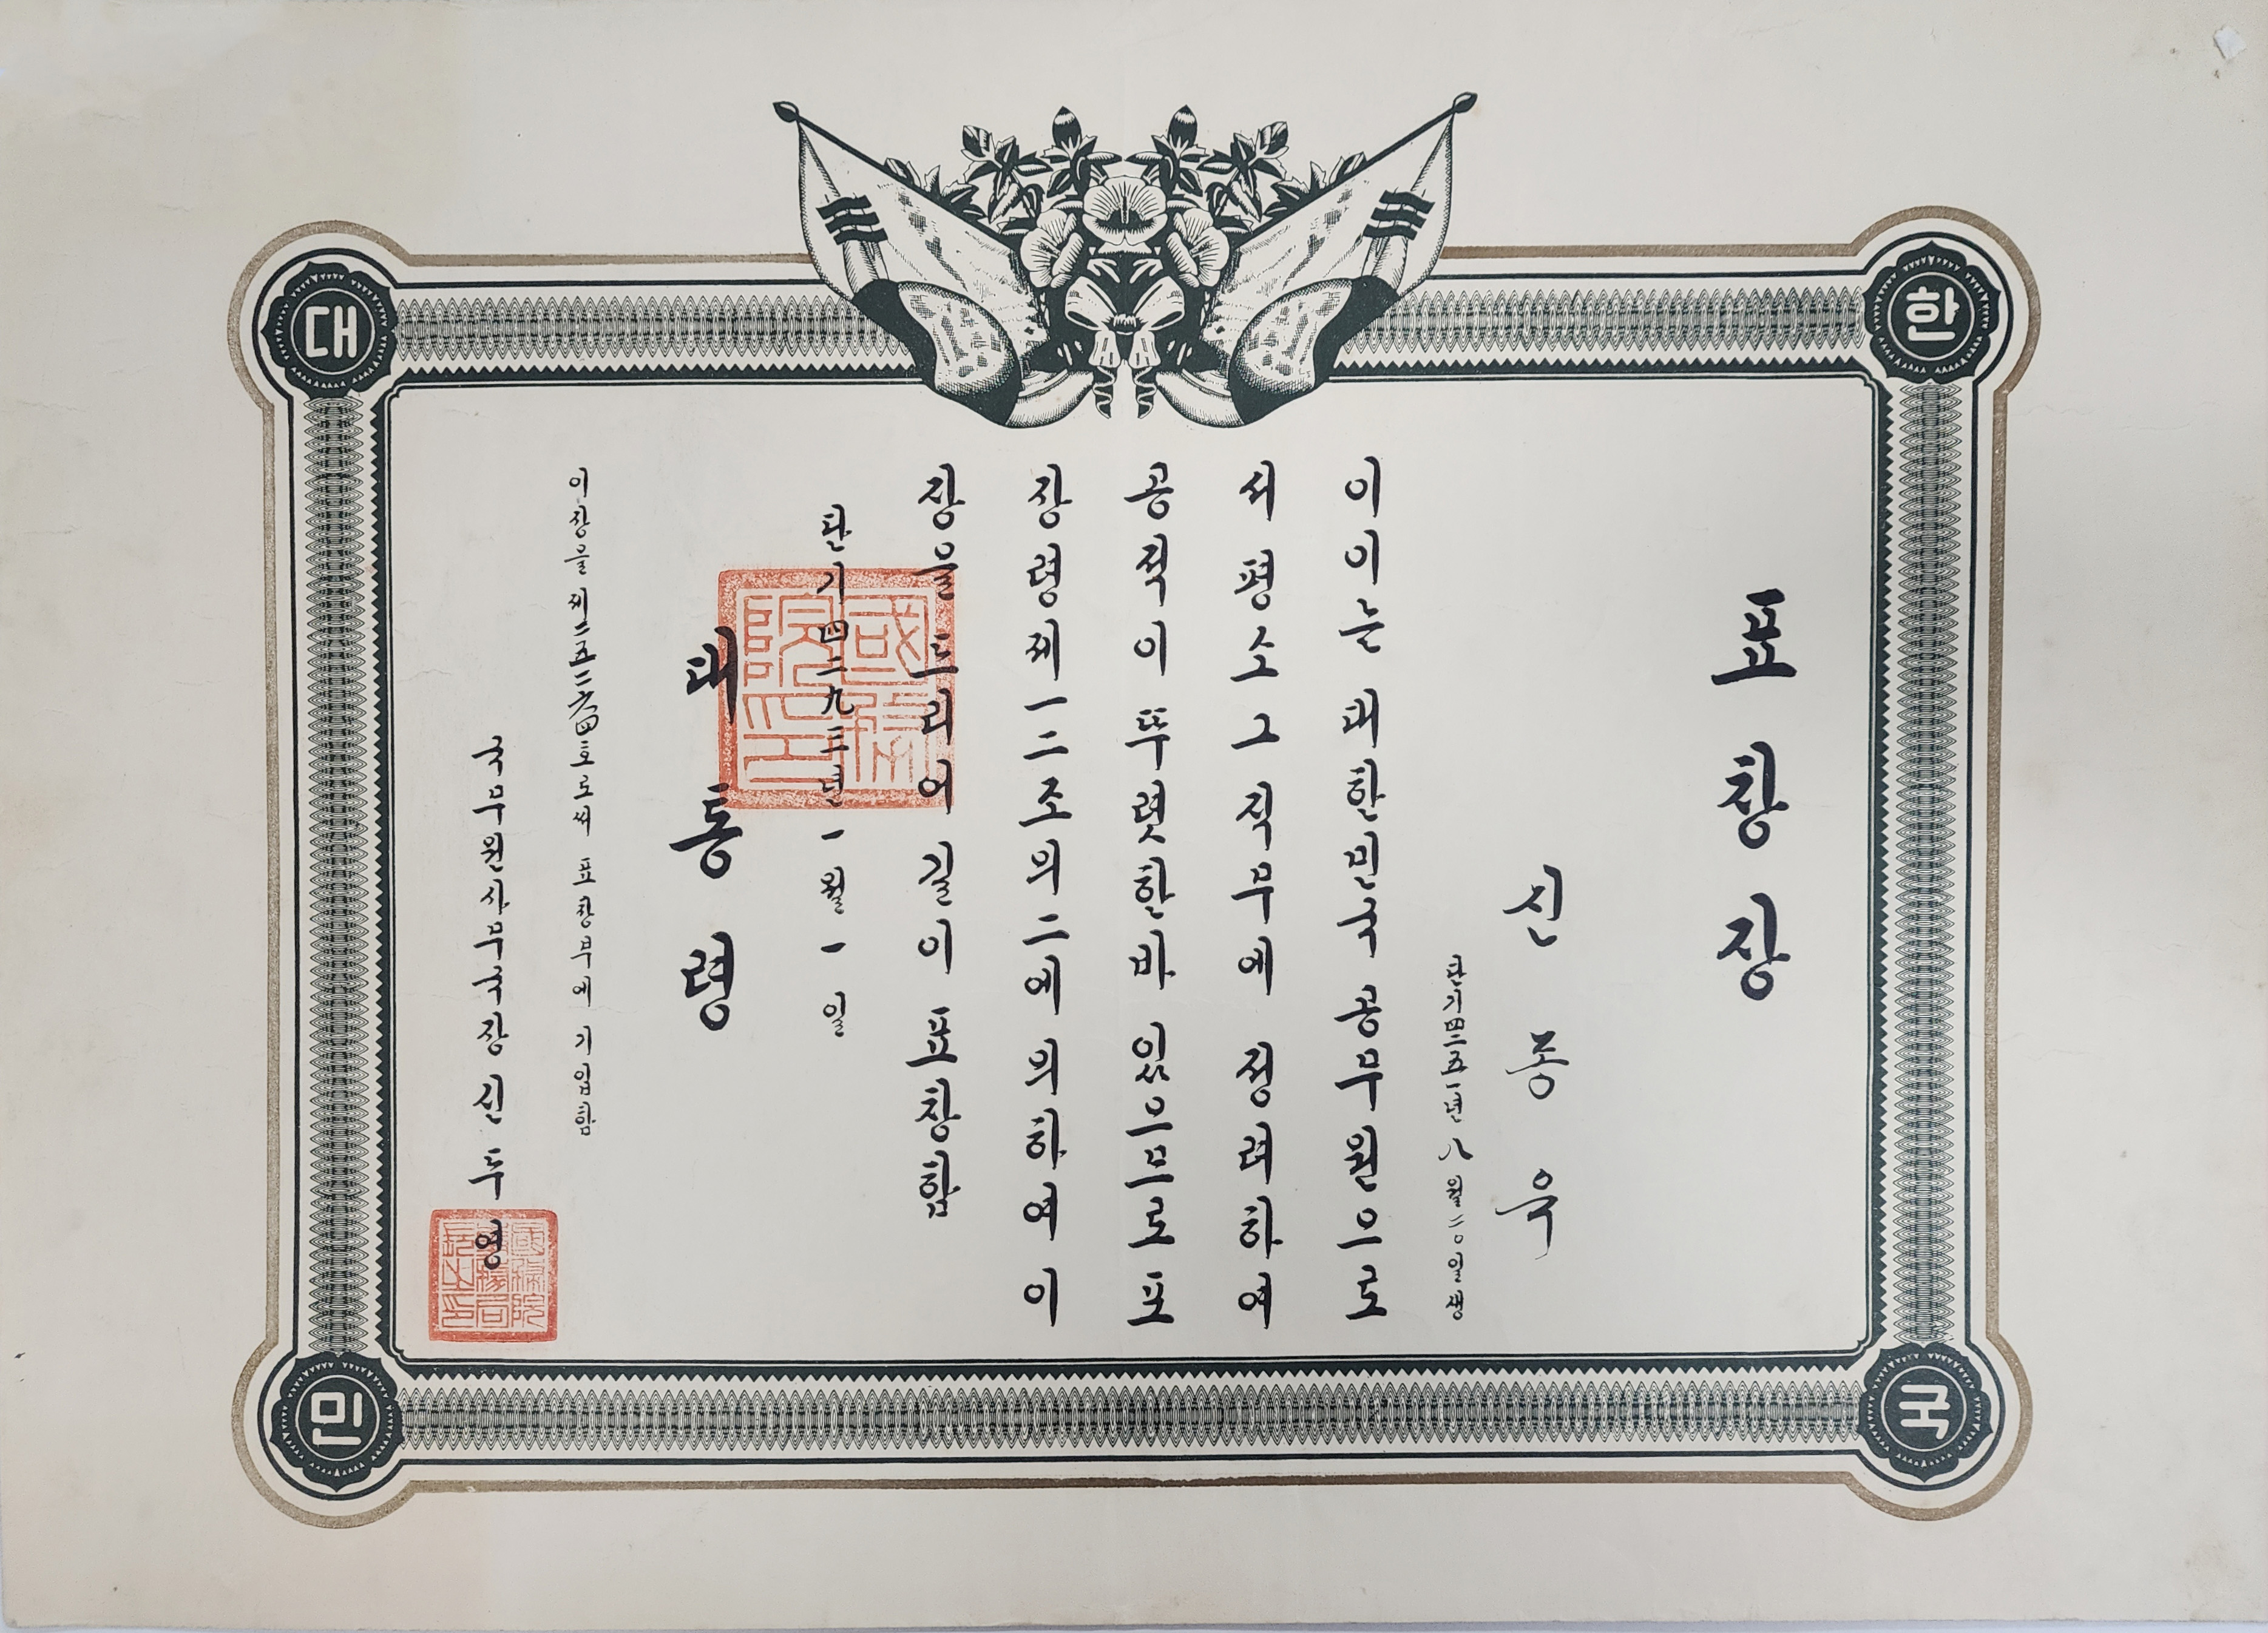 대 한
민 국
표창장
신동욱
단기四二五一년 八월 二〇일생
이이는 대한민국 공무원으로
서 평소 그 직무에 정려하여
공적이 뚜렷한바 있으므로 포
장령제一二조의二에 의하여 이
장을 드리어 길이 표창함
단기四二九三년 一월 一일
대통령
國務院印
이장을 제二五二六四호로써 표창부에 기입함
국무원사무국장 신두영
國務院事務局長之印